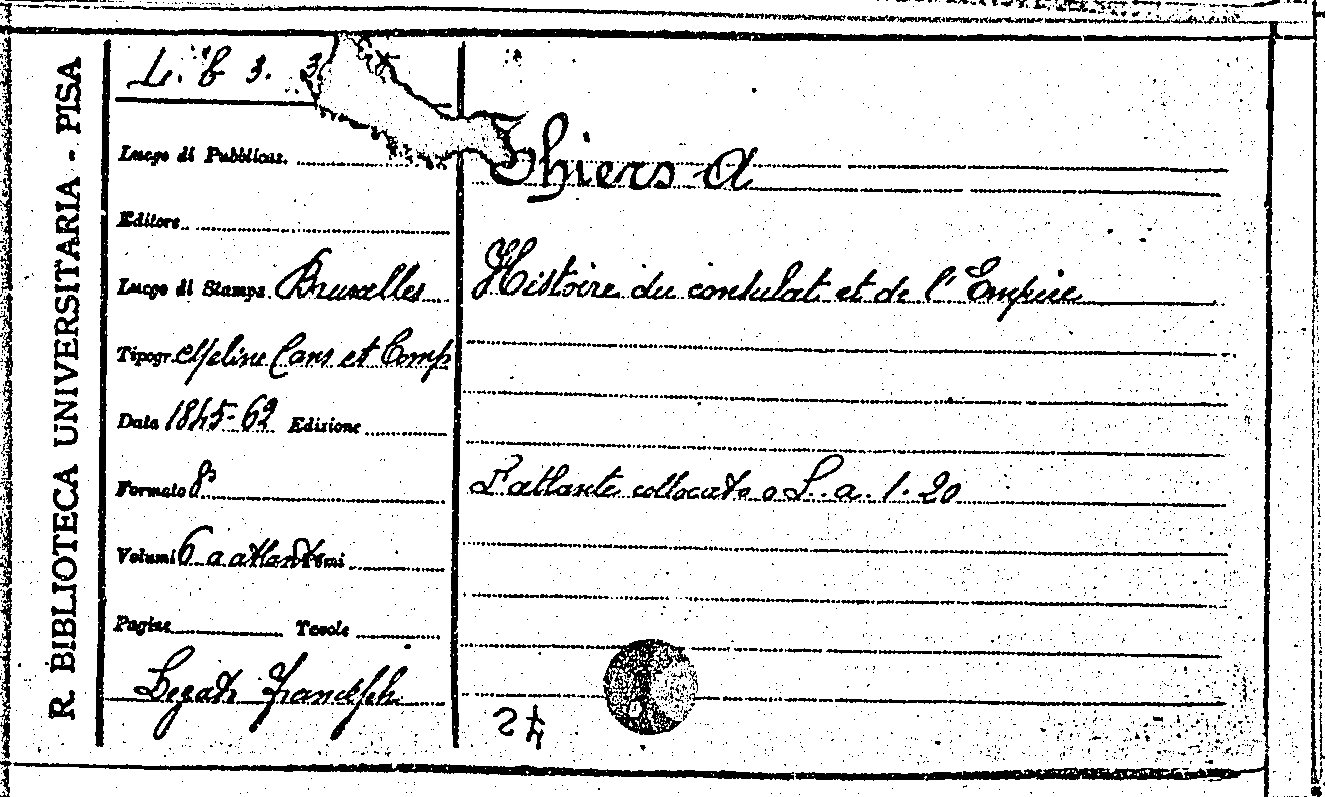 R. BIBLIOTECA UNIVERSITARIA - PISA
L. b 3. 3
Luogo di Pubblicaz.
Editore
Luogo di Stampa Bruxelles
Tipogr. Meline Cans et Comp
Data 1845-62 Edizione
Formato 8°
Volumi 6 a atlante Tomi
Pagine Tavole
Legato Franceschi
Thiers A
Histoire du consulat et de l'Empire
L'atlante collocato a L. a. 1. 20